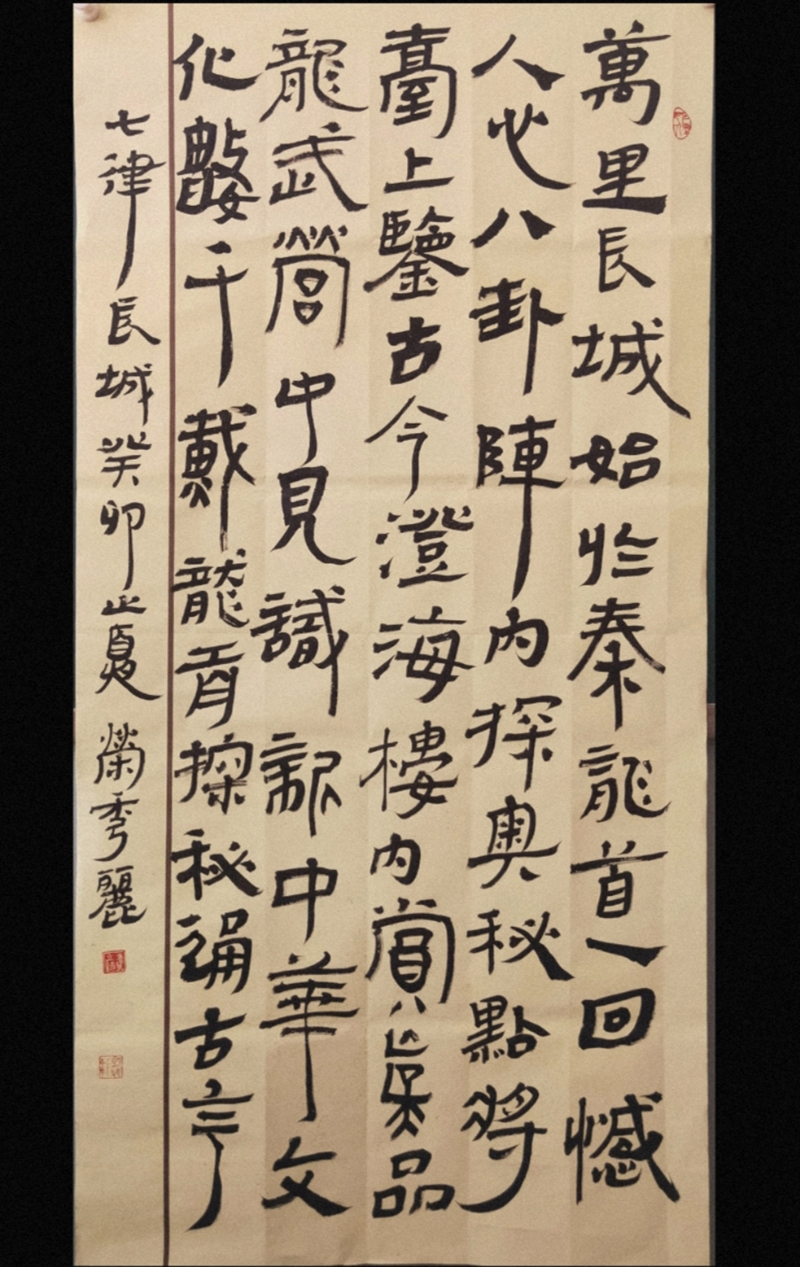 萬里長城始於秦龍首一回憾
人心八卦陣內探奧秘點將
臺上鑒古今澄海樓內賞品
龍武營中見識新中華文
化數千戴龍首探秘通古
七律長城癸卯之夏 榮秀麗